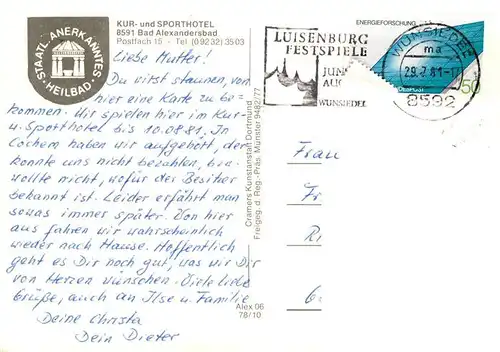 STAATL. ANERKANNTES
HEILBAD
KUR- und SPORTHOTEL
8591 Bad Alexandersbad
Postfach 15 - Tel (09232) 3503
Liebe Mutter!
Du wirst staunen, von
hier eine Karte zu be-
kommen. Wir spielen hier im Kur-
u. Sporthotel bis 10.08.81. In
Cochem haben wir aufgehört, der
konnte uns nicht bezahlen, bzw.
wollte nicht, wofür der Besitzer
bekannt ist. Leider erfährt man
sowas immer später. Von hier
aus fahren wir wahrscheinlich
wieder nach Hause. Hoffentlich
geht es Dir noch gut, was wir Dir
von Herzen wünschen. Viele liebe
Grüße, auch an Ilse u. Familie
Deine Christa
Dein Dieter
Cramers Kunstanstalt Dortmund
Freigeg. d. Reg.-Präs. Münster 9482/77
Alex 06
78/10
LUISENBURG
FESTSPIELE
JUN
AUG
WUNSIEDEL
ENERGIEFORSCHUNG
WUNSIEDEL
ma
29.7.81
8592
50
Frau
Fr